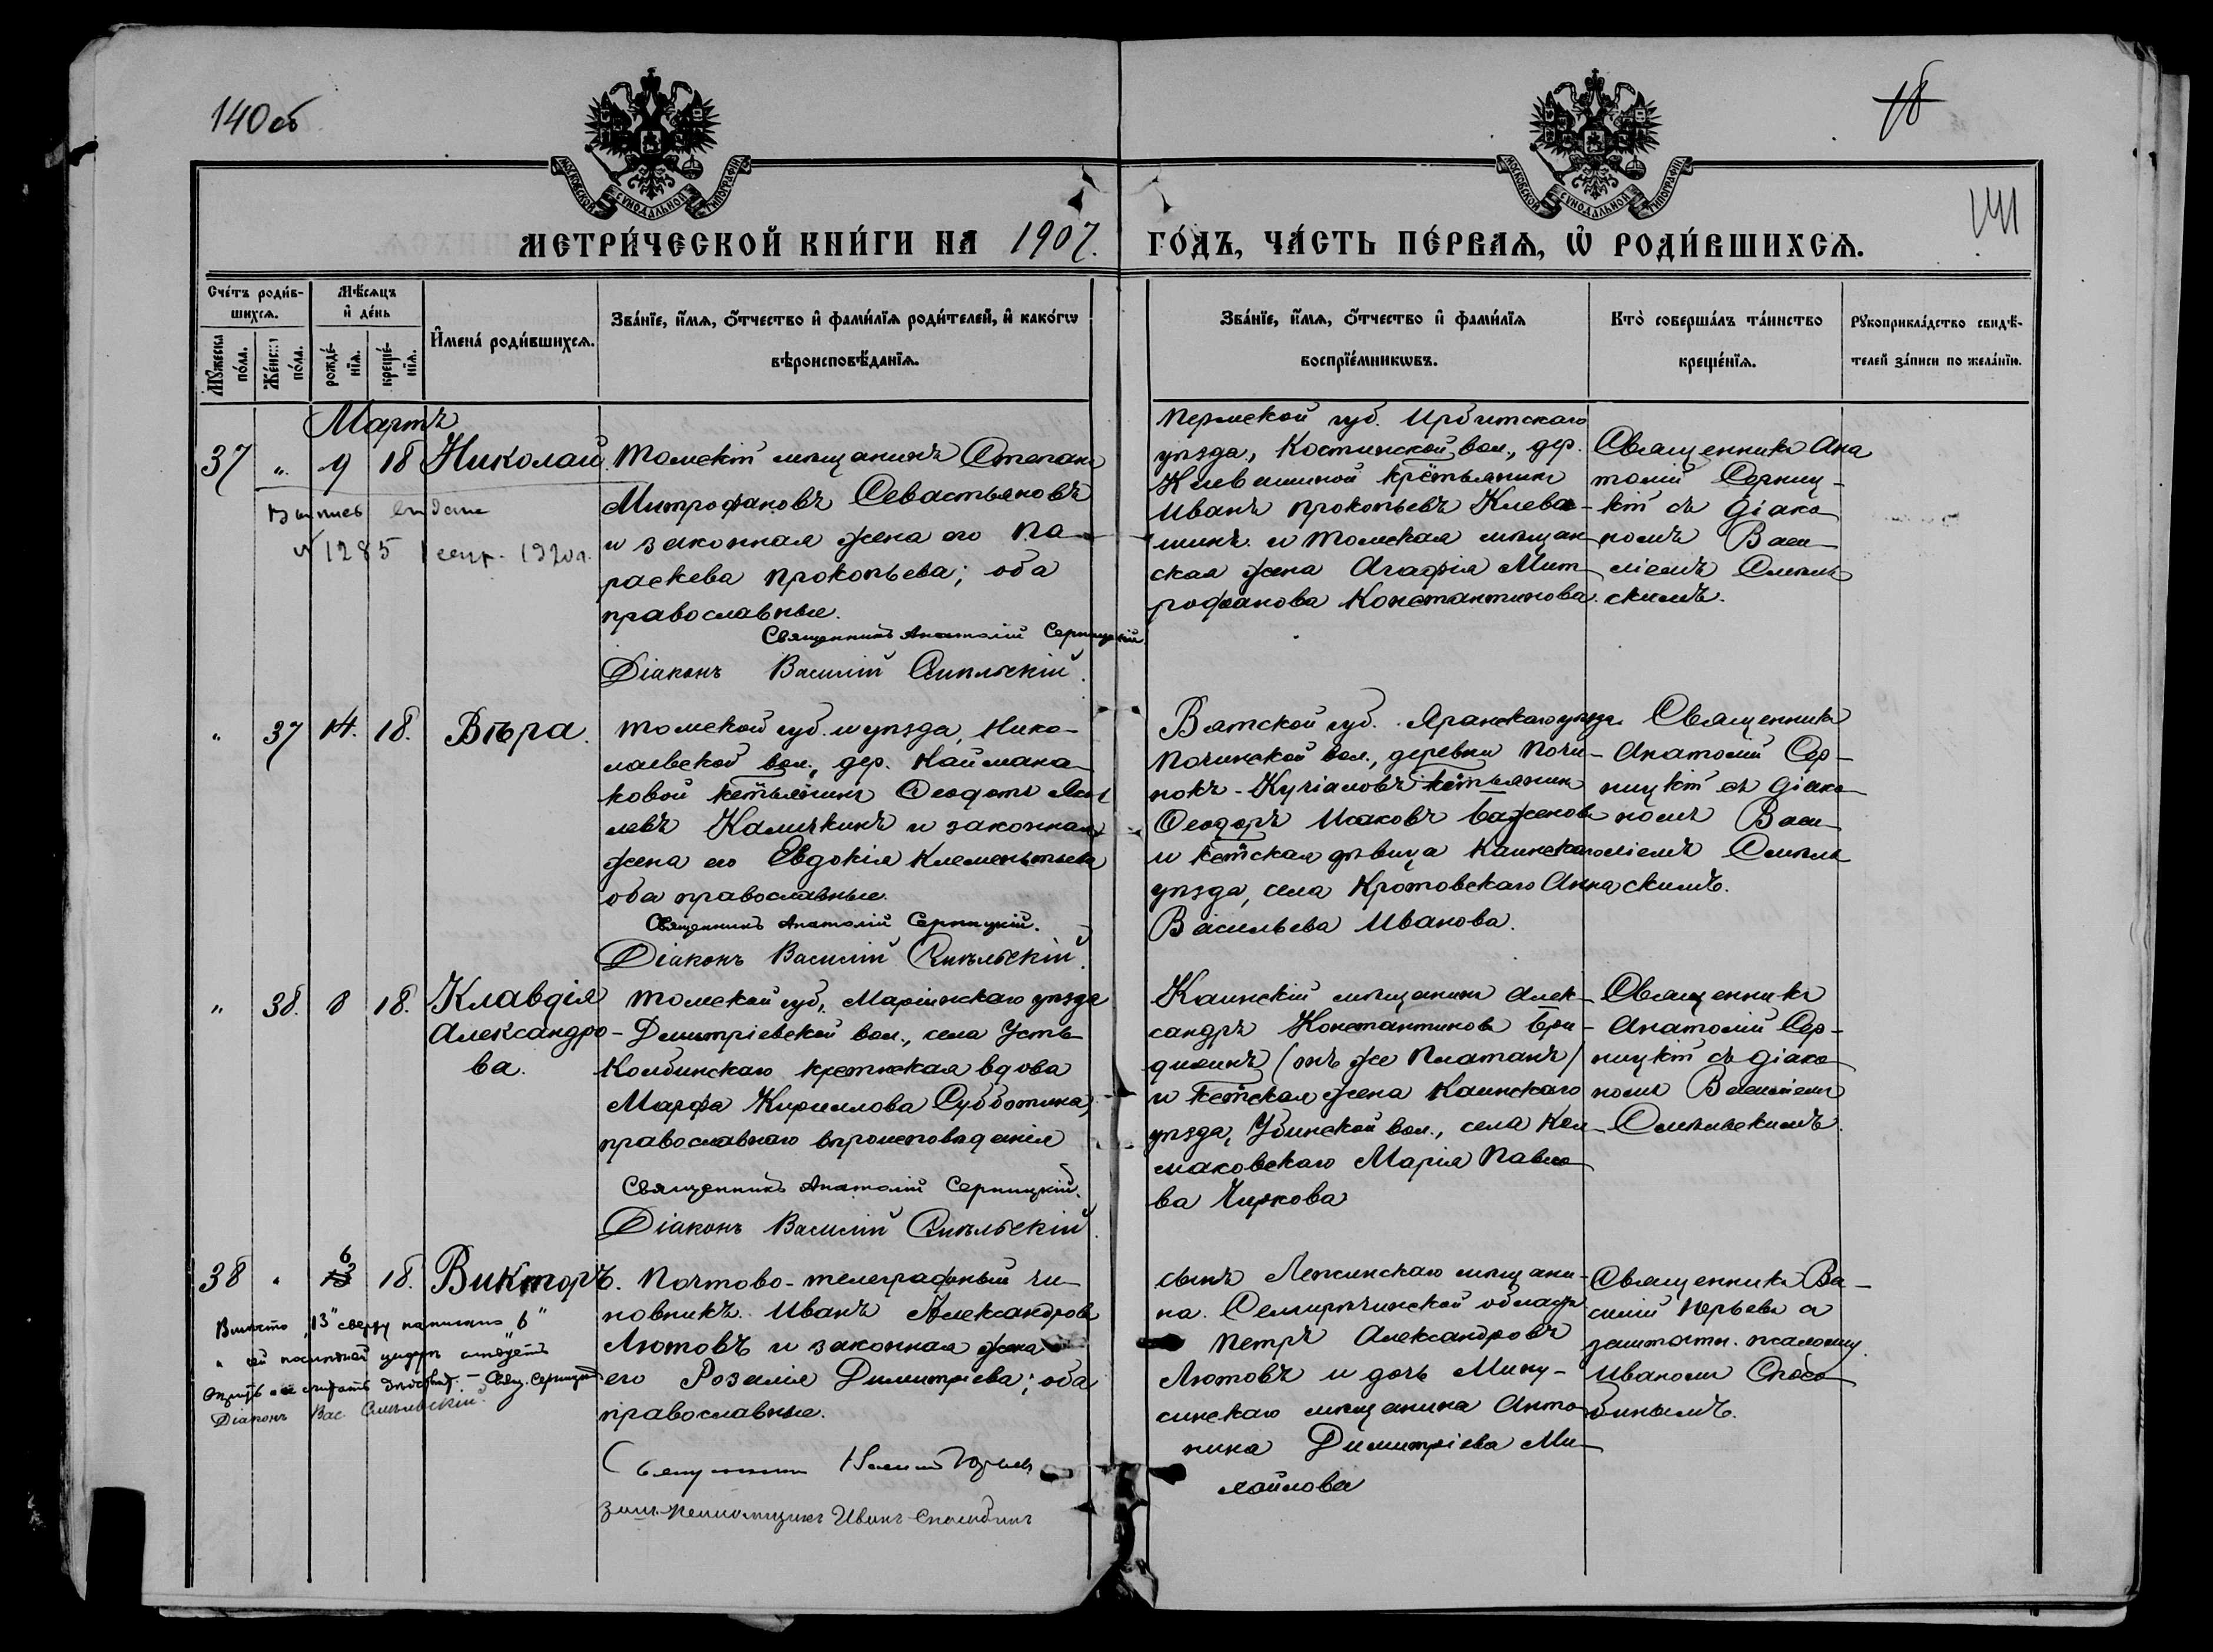 140об
18
141
МОСКОВСКОЙ СѴНОДАЛЬНОЙ ТИПОГРАФІИ
МОСКОВСКОЙ СѴНОДАЛЬНОЙ ТИПОГРАФІИ
МЕТРИ́ЧЕСКОЙ КНИ́ГИ НА 1907.
ГО́ДЪ, ЧА́СТЬ ПЕ́РВАѦ, Ѡ҆ РОДИ́ВШИХСѦ.
Сче́тъ роди́в-
шихсѧ.
Мѹ́жеска по́ла.
Же́нска по́ла.
Мѣ́сѧцъ
и҆ де́нь
рожде́-
нїѧ.
креще́-
нїѧ.
И҆мена́ роди́вшихсѧ.
Зва́нїе, и҆́мѧ, ѻ҆́тчество и҆ фами́лїѧ роди́телей, и҆ како́гѡ
вѣроисповѣ́данїѧ.
Зва́нїе, и҆́мѧ, ѻ҆́тчество и҆ фами́лїѧ
воспрїе́мникѡвъ.
Кто̀ соверша́лъ та́инство
креще́нїѧ.
Рѹкоприкла́дство свидѣ́-
телей за́писи по жела́нїю.
Мартъ
37 " 9 18 Николай.
Выпись выдана
№ 1285 1 сент. 1920 г.
Томскій мѣщанинъ Стефанъ
Митрофановъ Севастьяновъ
и законная жена его Па-
раскева Прокопьева; оба
православные.
Священникъ Анатолій Серницкій
Діаконъ Василій Смѣльскій.
Пермской губ. Ирбитскаго
уѣзда, Костинской вол., дер.
Клевакиной крестьянинъ
Иванъ Прокопьевъ Клева-
кинъ и Томская мѣщан-
ская жена Агафія Мит-
рофанова Константинова.
Священникъ Ана
толій Серниц-
кій съ діако
номъ Васи-
ліемъ Смѣль
скимъ.
" 37 14. 18. Вѣра.
Томской губ. и уѣзда, Нико-
лаевской вол., дер. Каймана-
ковой кр̃стьянинъ Ѳеодотъ Яков
левъ Каличкинъ и законная
жена его Евдокія Клементьева
оба православные.
Священникъ Анатолій Серницкій.
Діаконъ Василій Смѣльскій.
Вятской губ. Яранскаго уѣзда
Починской вол., деревни Почи-
нокъ-Кучіановъ кр̃стьянинъ
Ѳеодоръ Исаковъ Баженовъ
и кр̃стская дѣвица Каинскаго
уѣзда, села Кротовскаго Анна
Васильева Иванова.
Священникъ
Анатолій Сер-
ницкій съ діако
номъ Васи-
ліемъ Смѣль
скимъ.
" 38. 8 18. Клавдія
Александро-
ва.
Томской губ., Маріинскаго уѣзда
Димитріевской вол., села Усть-
Колбинскаго крестьянская вдова
Марфа Кириллова Субботина,
православнаго вѣроисповѣданія
Священникъ Анатолій Серницкій.
Діаконъ Василій Смѣльскій.
Каинскій мѣщанинъ Алек-
сандръ Константиновъ
(онъ же Платанъ)
и кр̃стская жена Каинскаго
уѣзда, Убинской вол., села Кол-
маковскаго Марія Павло
ва Чиркова
Священникъ
Анатолій Сер-
ницкій съ діако
номъ Василіемъ
Смѣльскимъ.
38 " 6 13 18. Викторъ.
Вмѣсто „13" сверху написано „6"
Діаконъ Вас. Смѣльскій.
Почтово-телеграфный чи-
новникъ Иванъ Александровъ
Лютовъ и законная жена
его Розалія Димитріева; оба
православные.
Священникъ Василій Юрьевъ
Иванъ Способинъ
сынъ Лепсинскаго мѣщани-
на Семирѣчинской области
Петръ Александровъ
Лютовъ и дочь Мину-
синскаго мѣщанина Анто-
нина Димитріева Ми-
хайлова
Священникъ Ва-
силій Юрьевъ съ
заштатн. псаломщ.
Иваномъ Спосо-
бинымъ.